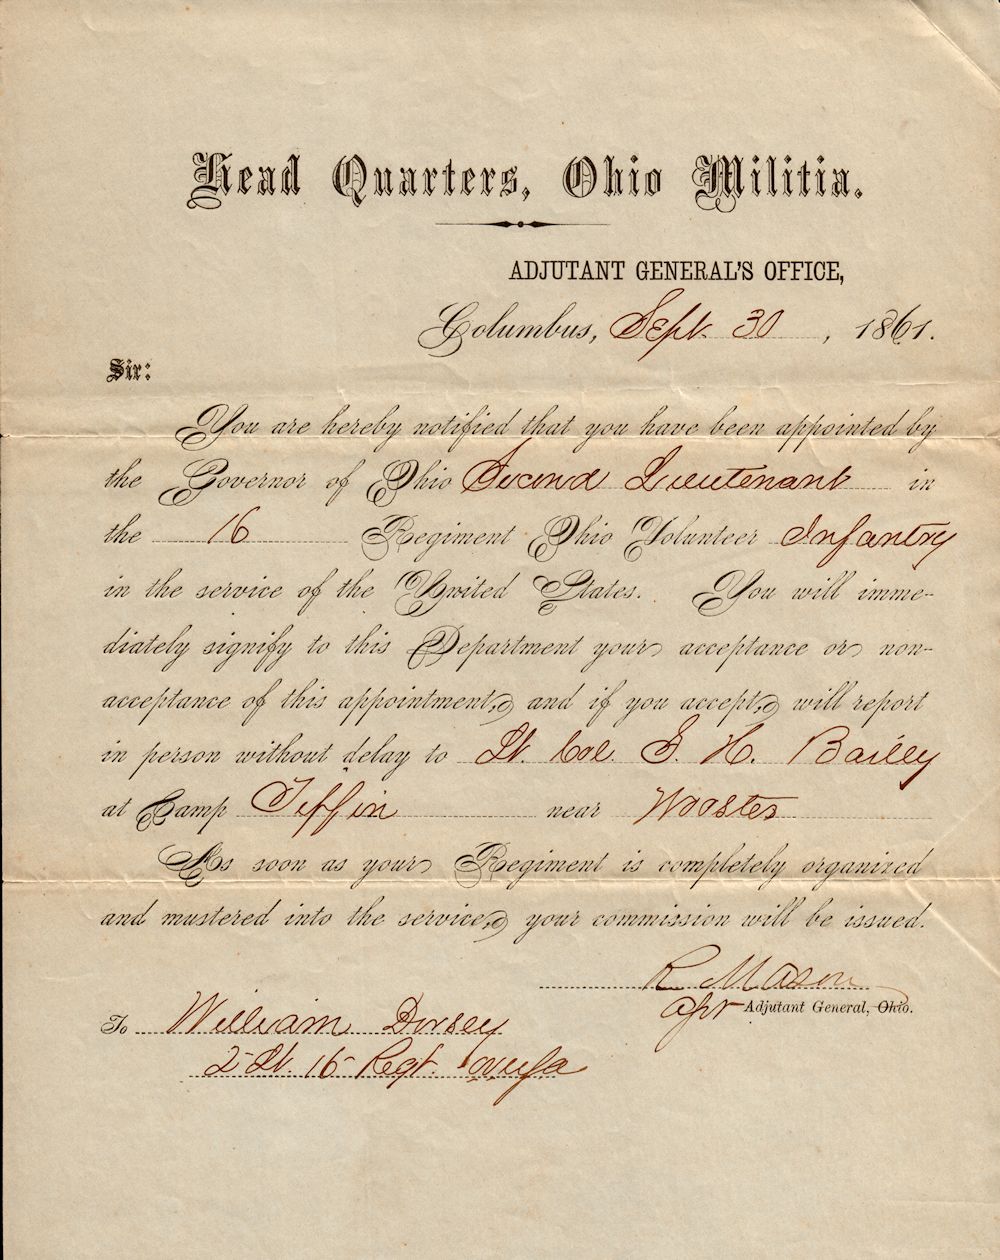 Head Quarters, Ohio Militia.
ADJUTANT GENERAL'S OFFICE,
Columbus, Sept. 30, 1861.
Sir:
You are hereby notified that you have been appointed by
the Governor of Ohio Second Lieutenant in
the 16 Regiment Ohio Volunteer Infantry
in the service of the United States. You will imme-
diately signify to this Department your acceptance or non-
acceptance of this appointment, and if you accept, will report
in person without delay to Lt. Col. G. H. Bailey
at Camp Tiffin near Wooster
As soon as your Regiment is completely organized
and mustered into the service, your commission will be issued.
R. Mason
Adjutant General, Ohio.
To William Dorsey
2 Lt. 16 Regt.